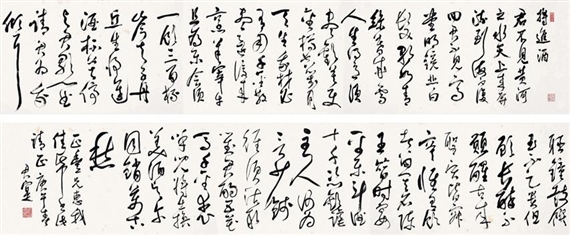 將進酒
君不見黃河
之水天上來奔
流到海不復
回君不見高
堂明鏡悲白
髮朝如青
絲暮成雪
人生得意須
盡歡莫使
金樽空對月
天生我材必
有用千金散
盡還復來
烹羊宰牛
且爲樂會須
一飲三百杯
岑夫子丹
丘生將進
酒杯莫停
與君歌一曲
請君爲我
傾耳
聽鐘鼓饌
玉不足貴但
願長醉不
願醒古來
聖賢皆寂
寞惟有飲
者留其名陳
王昔時宴
平樂斗酒
十千恣歡謔
主人何爲
言少錢
徑須沽取
對君酌五花
馬千金裘
呼兒將出換
美酒與爾
同銷萬古
愁
兄惠我
佳紙
請正庚午